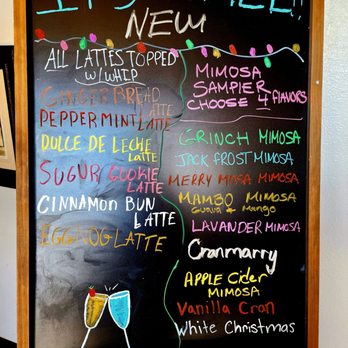 NEW
ALL LATTES TOPPED
W/ WHIP
GINGERBREAD
LATTE
PEPPERMINT LATTE
DULCE DE LECHE
LATTE
SUGUR COOKIE
LATTE
CINNAMON BUN
LATTE
EGGNOG LATTE
MIMOSA
SAMPIER
CHOOSE 4 FLAVORS
GRINCH MIMOSA
JACK FROST MIMOSA
MERRY MOSA MIMOSA
MAMBO MIMOSA
Guava & Mango
LAVANDER MIMOSA
Cranmarry
APPLE Cider
MIMOSA
Vanilla Cran
White Christmas